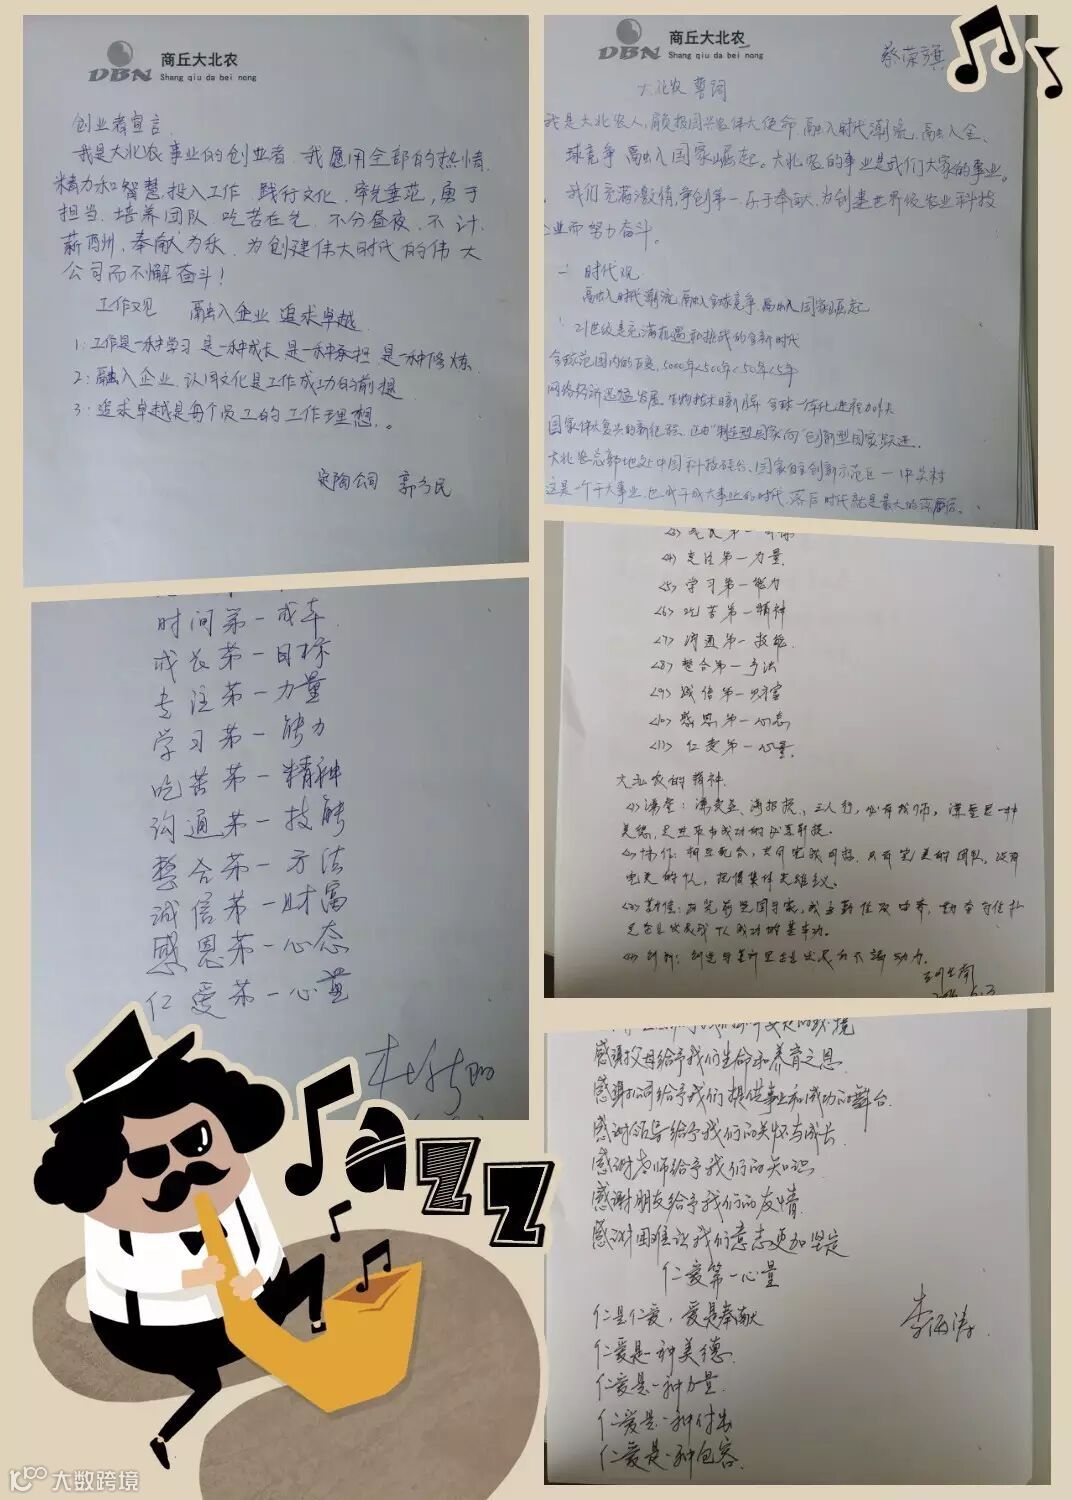 DBN
商丘大北农
Shang qiu da bei nong
创业者宣言
我是大北农事业的创业者 我愿用全部的热情.
精力和智慧,投入工作. 践行文化. 率先垂范, 勇于
担当. 培养团队 吃苦在先. 不分昼夜. 不计
薪酬, 奉献为乐. 为创建伟大时代的伟大
公司而不懈奋斗!
工作观 融入企业 追求卓越
1:工作是一种学习 是一种成长 是一种承担 是一种修炼.
2:融入企业.认同文化是工作成功的前提
3:追求卓越是每个员工的工作理想.
定陶公司
DBN
商丘大北农
Shang qiu da bei nong
蔡荣旗
大北农 誓词
我是大北农人,愿报国兴农伟大使命 融入时代潮流,融入全
球竞争 融入国家崛起。大北农的事业是我们大家的事业。
我们充满激情,争创第一,乐于奉献,为创建世界级农业科技
业而努力奋斗。
一 时代观
融入时代潮流 融入全球竞争 融入国家崛起
21世纪是充满机遇和挑战的全新时代
全球范围内的巨变,5000年<500年<50年<5年
网络经济迅猛发展.生物技术日新月异 全球一体化进程加快
国家伟大复兴的新征程. 正由"制造型国家"向"创新型国家"跃进.
大北农总部地处中国科技硅谷、国家自主创新示范区一中关村
这是一个干大事业,也成千成大事业的时代.落后时代就是最大的
时间第一成本
成长第一目标
专注第一力量
学习第一能力
吃苦第一精神
沟通第一技能
整合第一方法
诚信第一财富
感恩第一心态
仁爱第一心量
<4> 专注第一力量.
<5> 学习第一能力
<6> 吃苦第一精神
<7> 沟通第一技能.
<8> 整合第一方法
<9> 诚信第一财富
<10> 感恩第一心态
<11> 仁爱第一心量.
大北农的精神.
三人行,必有我师,
感谢父母给予我们生命和养育之恩.
感谢公司给予我们提供事业和成功的舞台.
感谢领导给予我们的关怀与成长.
感谢老师给予我们的知识
感谢朋友给予我们的友情
感谢困难让我们意志更加坚定
仁爱第一心量
仁是仁爱, 爱是奉献
仁爱是一种美德.
仁爱是一种力量.
仁爱是一种付出
仁爱是一种包容.
Jazz
大数跨境